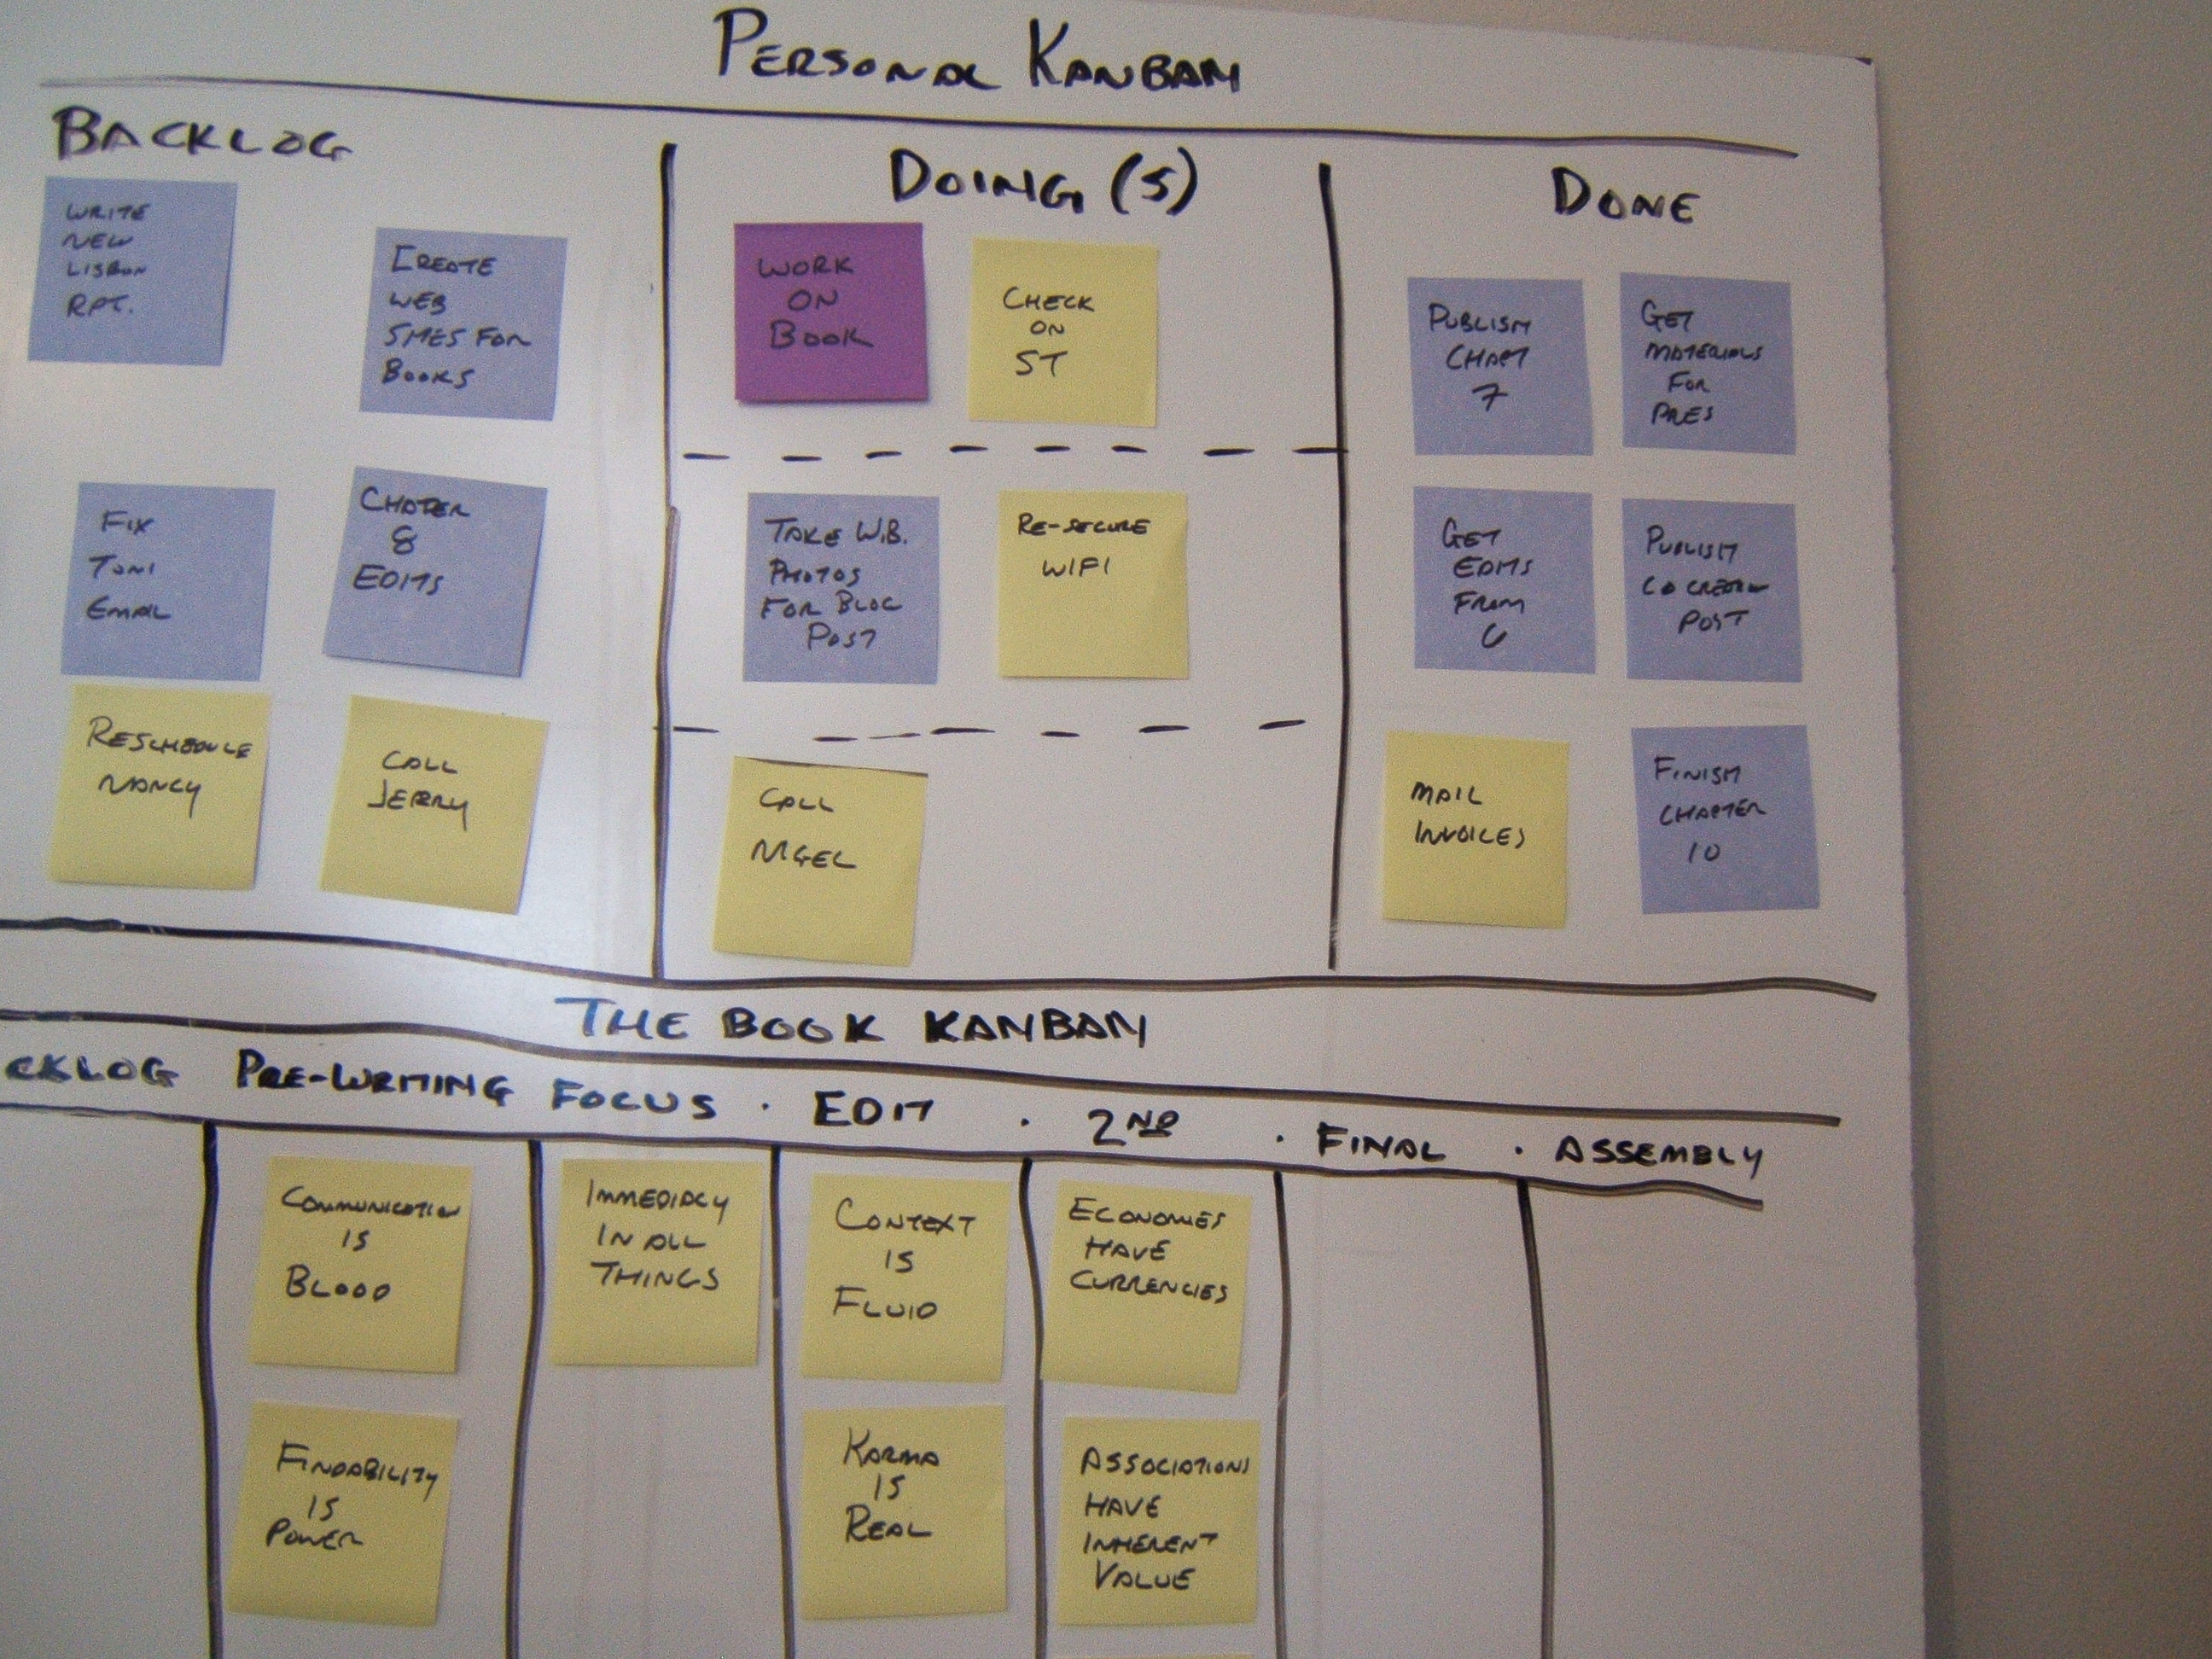 PERSONAL KANBAN
BACKLOG
WRITE
NEW
LISBON
RPT.
CREATE
WEB
SITES FOR
BOOKS
FIX
TONI
EMAIL
CHAPTER
8
EDITS
RESCHEDULE
NANCY
CALL
JERRY
DOING (5)
WORK
ON
BOOK
CHECK
ON
ST
TAKE W.B.
PHOTOS
FOR BLOG
POST
RE-SECURE
WIFI
CALL
DONE
PUBLISH
CHAPT
7
GET
MATERIALS
FOR
PRES
GET
EDITS
FROM
6
PUBLISH
POST
MAIL
INVOICES
FINISH
CHAPTER
10
THE BOOK KANBAN
CKLOG PRE-WRITING FOCUS · EDIT · 2ND · FINAL · ASSEMBLY
COMMUNICATION
IS
BLOOD
FINDABILITY
IS
POWER
IMMEDIACY
IN ALL
THINGS
CONTEXT
IS
FLUID
KARMA
IS
REAL
ECONOMIES
HAVE
CURRENCIES
ASSOCIATIONS
HAVE
INHERENT
VALUE